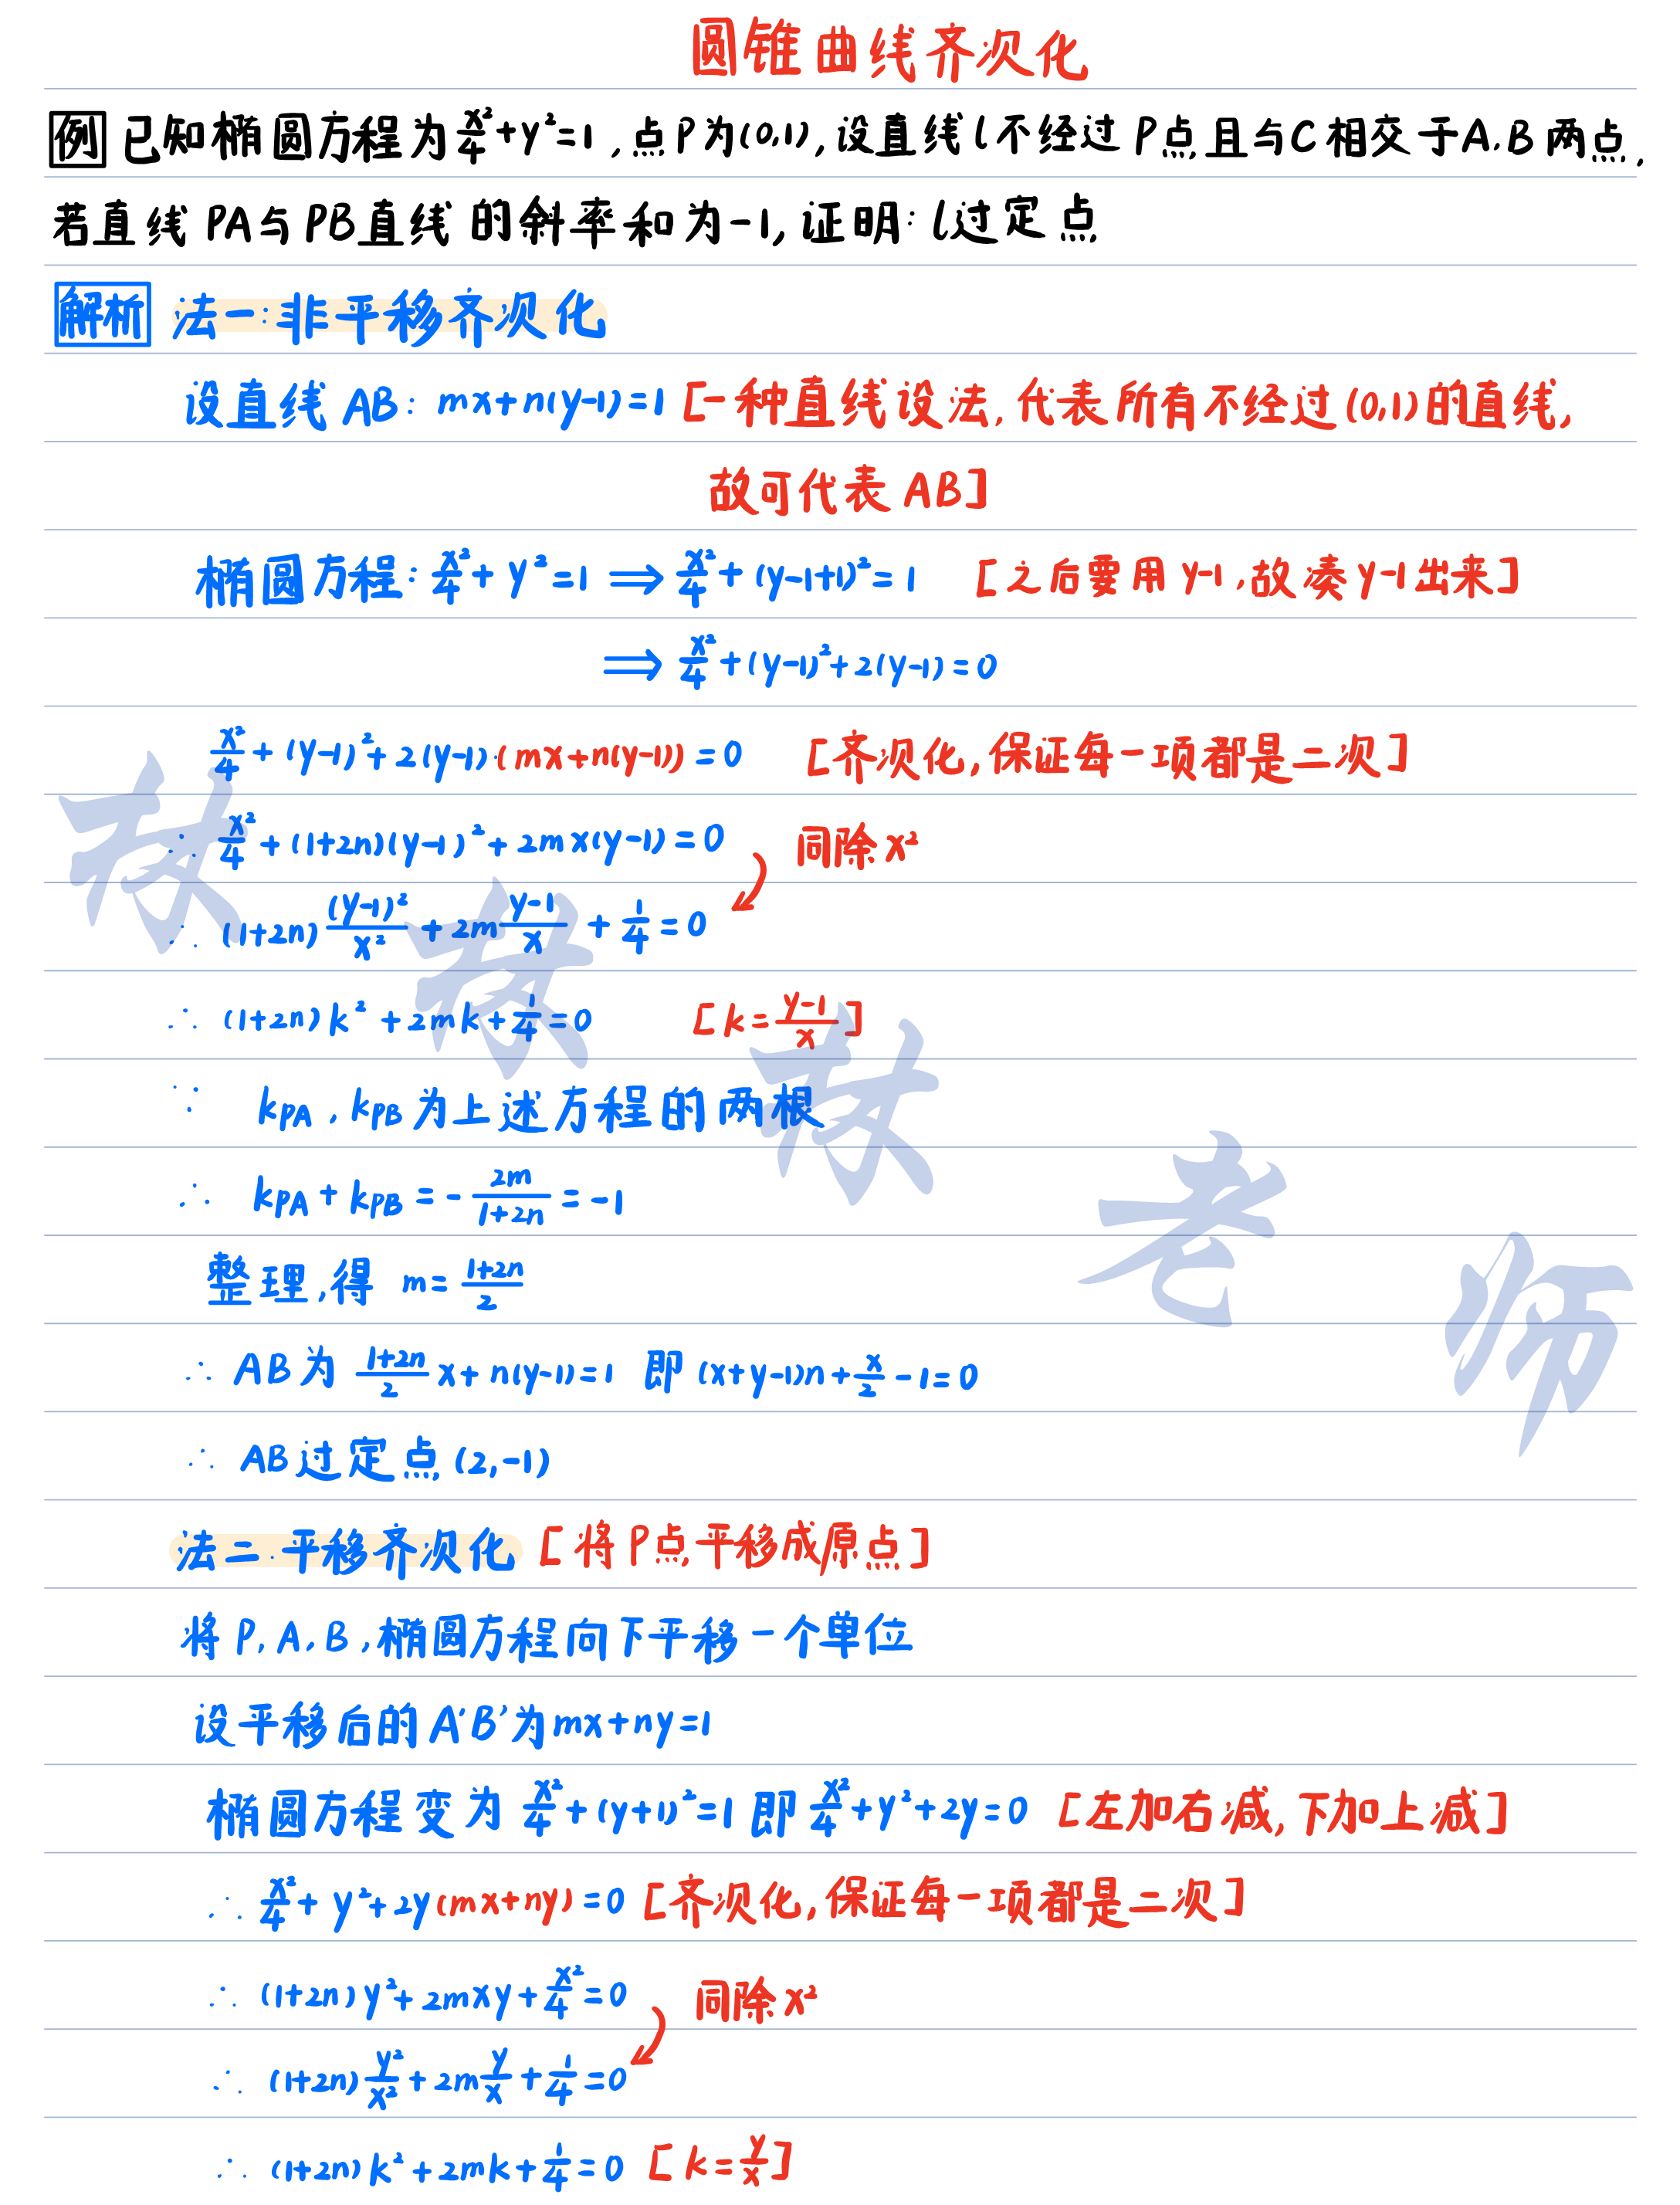 圆锥曲线齐次化
例 已知椭圆方程为x²/4+y²=1,点P为(0,1),设直线l不经过P点且与C相交于A.B两点,
若直线PA与PB直线的斜率和为-1,证明:l过定点
解析 法一:非平移齐次化
设直线AB: mx+n(y-1)=1 [一种直线设法,代表所有不经过(0,1)的直线,
故可代表AB]
椭圆方程:x²/4+y²=1 ⟹ x²/4+(y-1+1)²=1 [之后要用y-1,故凑y-1出来]
⟹ x²/4+(y-1)²+2(y-1)=0
x²/4+(y-1)²+2(y-1)·(mx+n(y-1))=0 [齐次化,保证每一项都是二次]
∴ x²/4+(1+2n)(y-1)²+2mx(y-1)=0 同除x²
∴ (1+2n)(y-1)²/x²+2m(y-1)/x+1/4=0
∴ (1+2n)k²+2mk+1/4=0 [k=(y-1)/x]
∵ kPA,kPB为上述方程的两根
∴ kPA+kPB=-2m/(1+2n)=-1
整理,得 m=(1+2n)/2
∴ AB为 (1+2n)/2 x+n(y-1)=1 即 (x+y-1)n+x/2-1=0
∴ AB过定点(2,-1)
法二:平移齐次化 [将P点平移成原点]
将P,A,B,椭圆方程向下平移一个单位
设平移后的A'B'为mx+ny=1
椭圆方程变为 x²/4+(y+1)²=1 即 x²/4+y²+2y=0 [左加右减,下加上减]
∴ x²/4+y²+2y(mx+ny)=0 [齐次化,保证每一项都是二次]
∴ (1+2n)y²+2mxy+x²/4=0 同除x²
∴ (1+2n)y²/x²+2m y/x+1/4=0
∴ (1+2n)k²+2mk+1/4=0 [k=y/x]
林林林老师